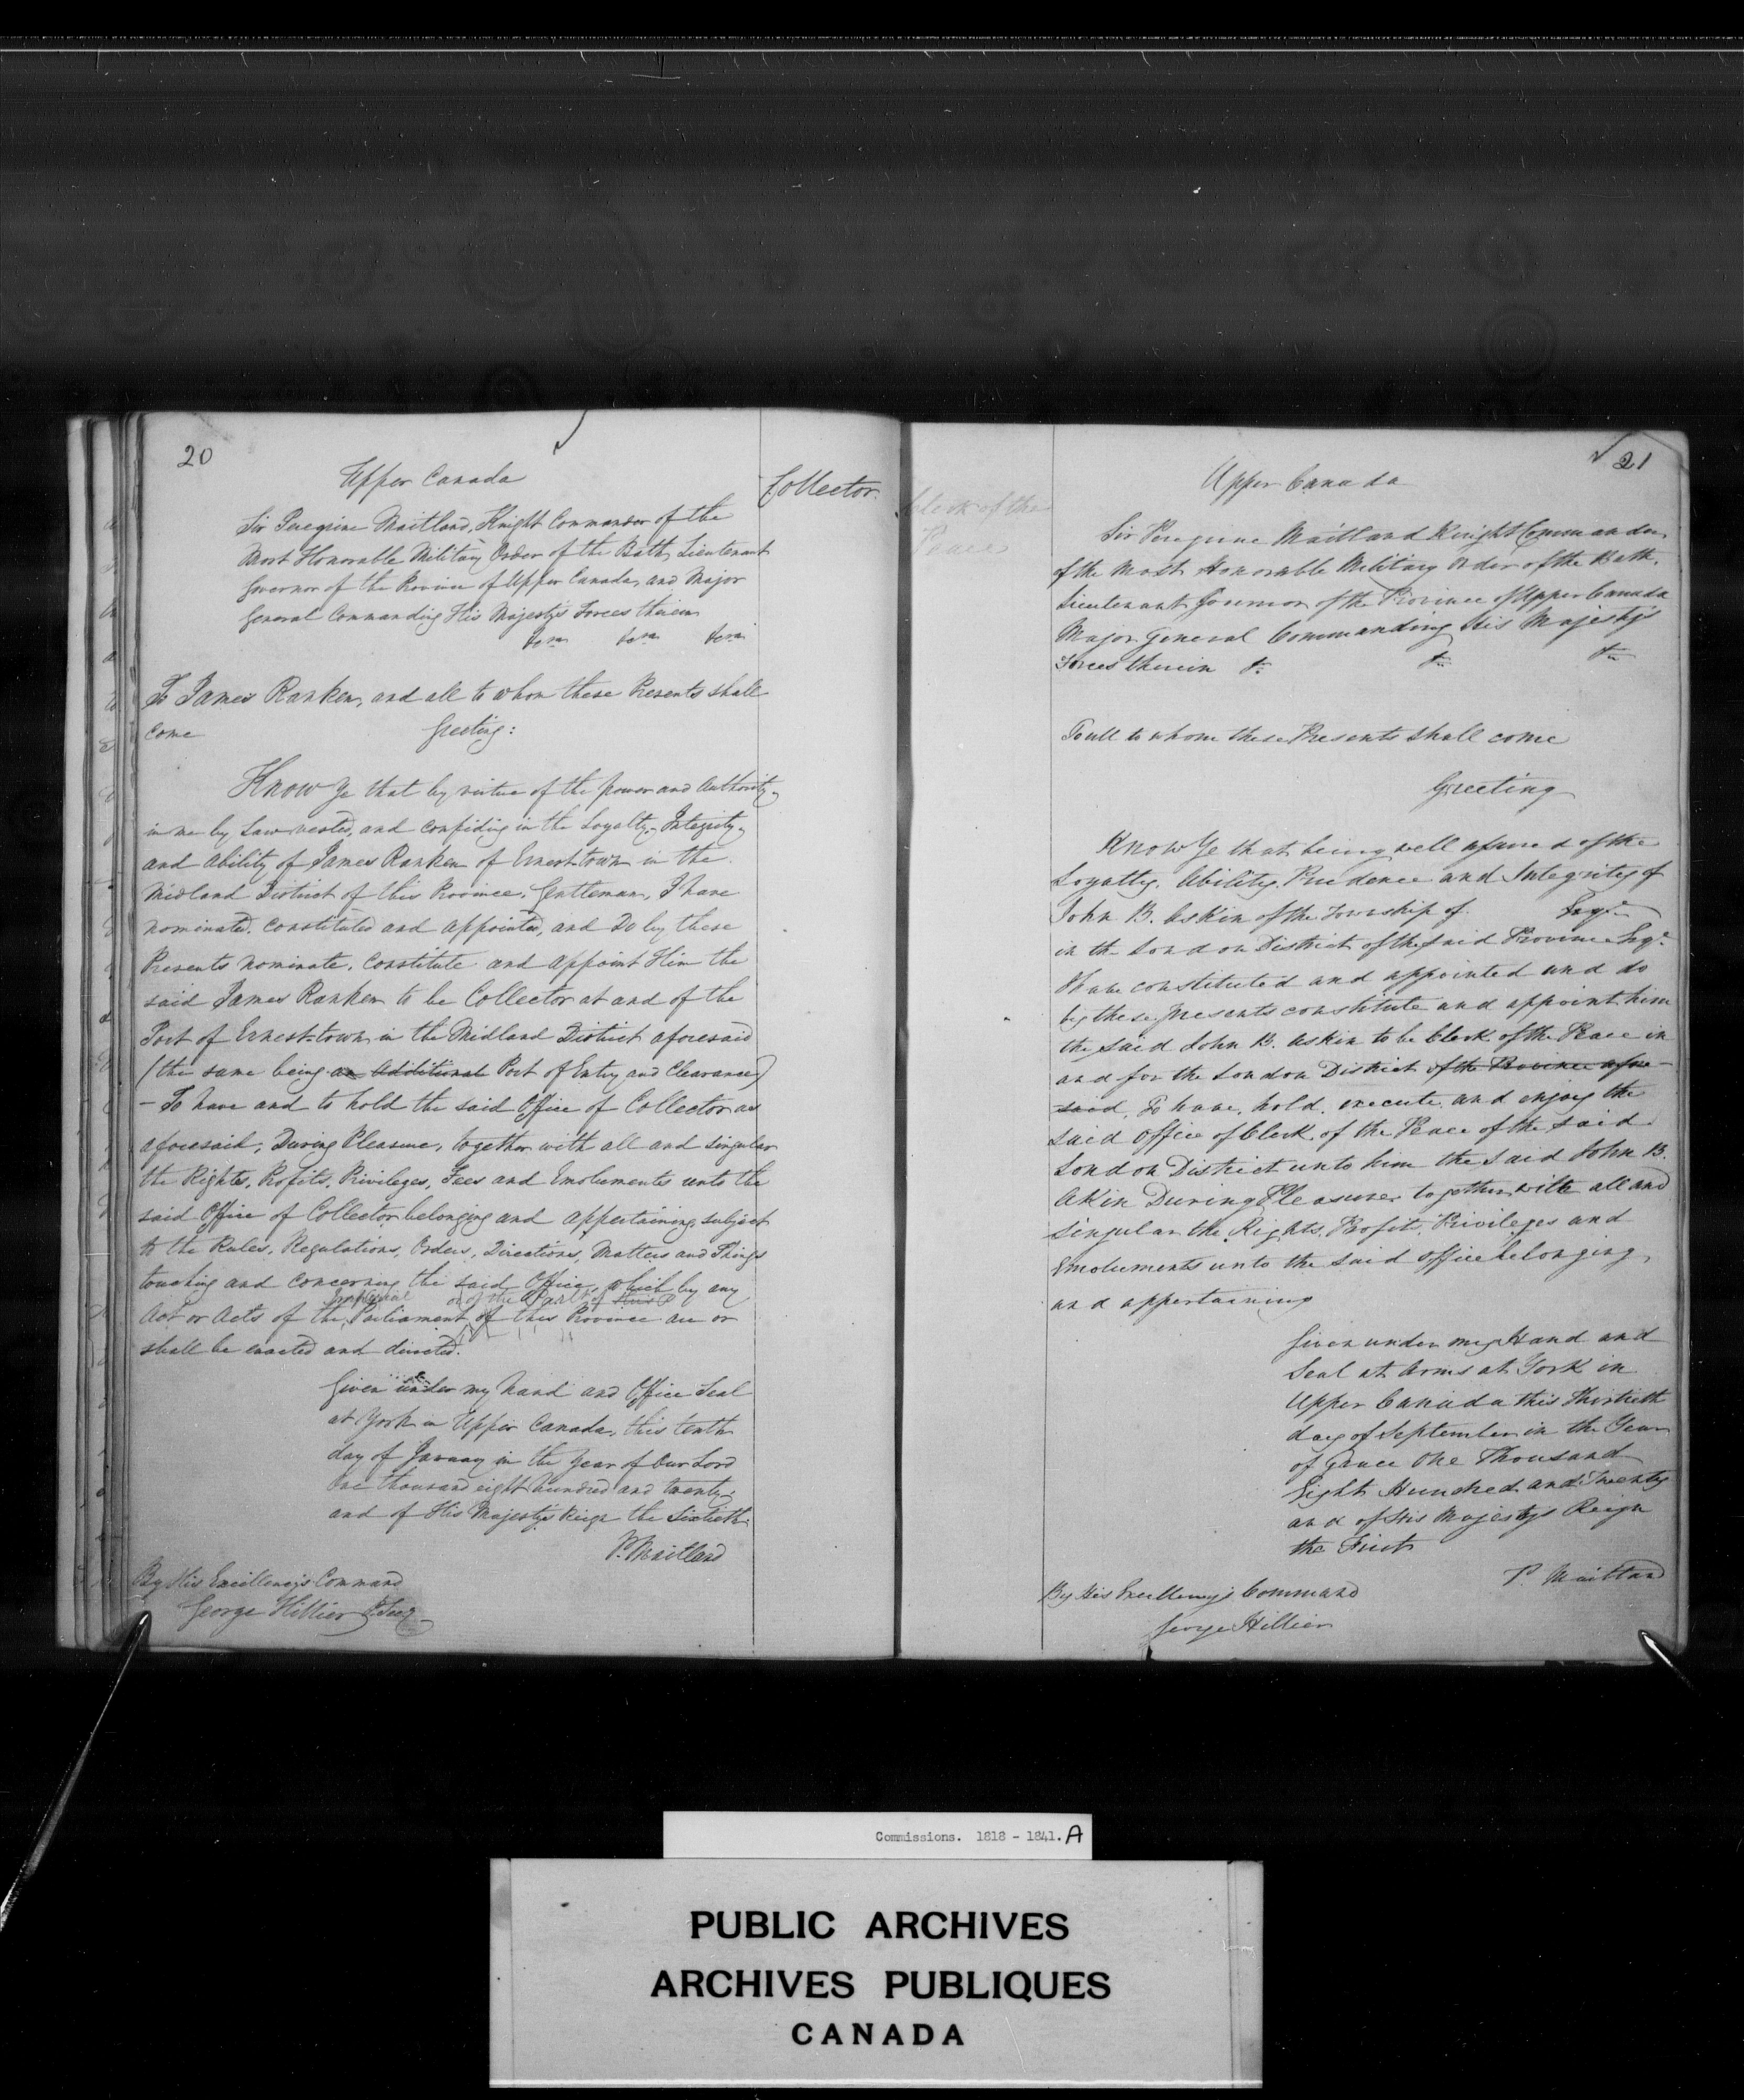 20
Upper Canada
Collector.
Sir Peregrine Maitland, Knight Commander of the
Most Honorable Military Order of the Bath, Lieutenant
Governor of the Province of Upper Canada, and Major
General Commanding His Majesty's Forces therein
&c &c &c
To James Ranken, and all to whom these Presents shall
come Greeting:
Know Ye that by virtue of the power and Authority
in me by Law vested, and confiding in the Loyalty, Integrity,
and Ability of James Ranken of Ernest-town in the
Midland District of this Province, Gentleman, I have
nominated, constituted and appointed, and Do by these
Presents nominate, constitute and appoint Him the
said James Ranken to be Collector at and of the
Port of Ernest-town in the Midland District aforesaid
(the same being an Additional Port of Entry and Clearance)
- To have and to hold the said Office of Collector as
aforesaid, During Pleasure, together with all and singular
the Rights, Profits, Privileges, Fees and Emoluments unto the
said Office of Collector belonging and appertaining, subject
to the Rules, Regulations, Orders, Directions, Matters and Things
touching and concerning the said Office, which by any
Imperial or of the Parlt of this P
Act or Acts of the Parliament of this Province are or
shall be enacted and directed.
Given under my hand and Office Seal
at York in Upper Canada, this tenth
day of January in the Year of Our Lord
One thousand eight hundred and twenty,
and of His Majesty's Reign the Sixtieth.
P. Maitland
By His Excellency's Command
George Hillier P. Secy
21
Clerk of the
Peace
Upper Canada
Sir Peregrine Maitland Knight Commander
of the Most Honorable Military Order of the Bath,
Lieutenant Governor of the Province of Upper Canada
Major General Commanding His Majesty's
Forces therein &c &c &c
To all to whom these Presents shall come
Greeting
Know Ye that being well assured of the
Loyalty, Ability, Prudence and Integrity of
John B. Askin of the Township of Esqr
in the London District of the said Province Esqr
Have constituted and appointed and do
by these presents constitute and appoint him
the said John B. Askin to be Clerk of the Peace in
and for the London District of the Province afore-
said, To have, hold, execute and enjoy the
said Office of Clerk of the Peace of the said
London District unto him the said John B.
Akin During Pleasure together with all and
singular the Rights, Profits, Privileges and
Emoluments unto the said office belonging
and appertaining
Given under my Hand and
Seal at Arms at York in
Upper Canada this Thirtieth
day of September in the Year
of Grace One Thousand
Eight Hundred and Twenty
and of His Majestys Reign
the First
P. Maitland
By His Excellency's Command
George Hillier
Commissions. 1818 - 1841. A
PUBLIC ARCHIVES
ARCHIVES PUBLIQUES
CANADA